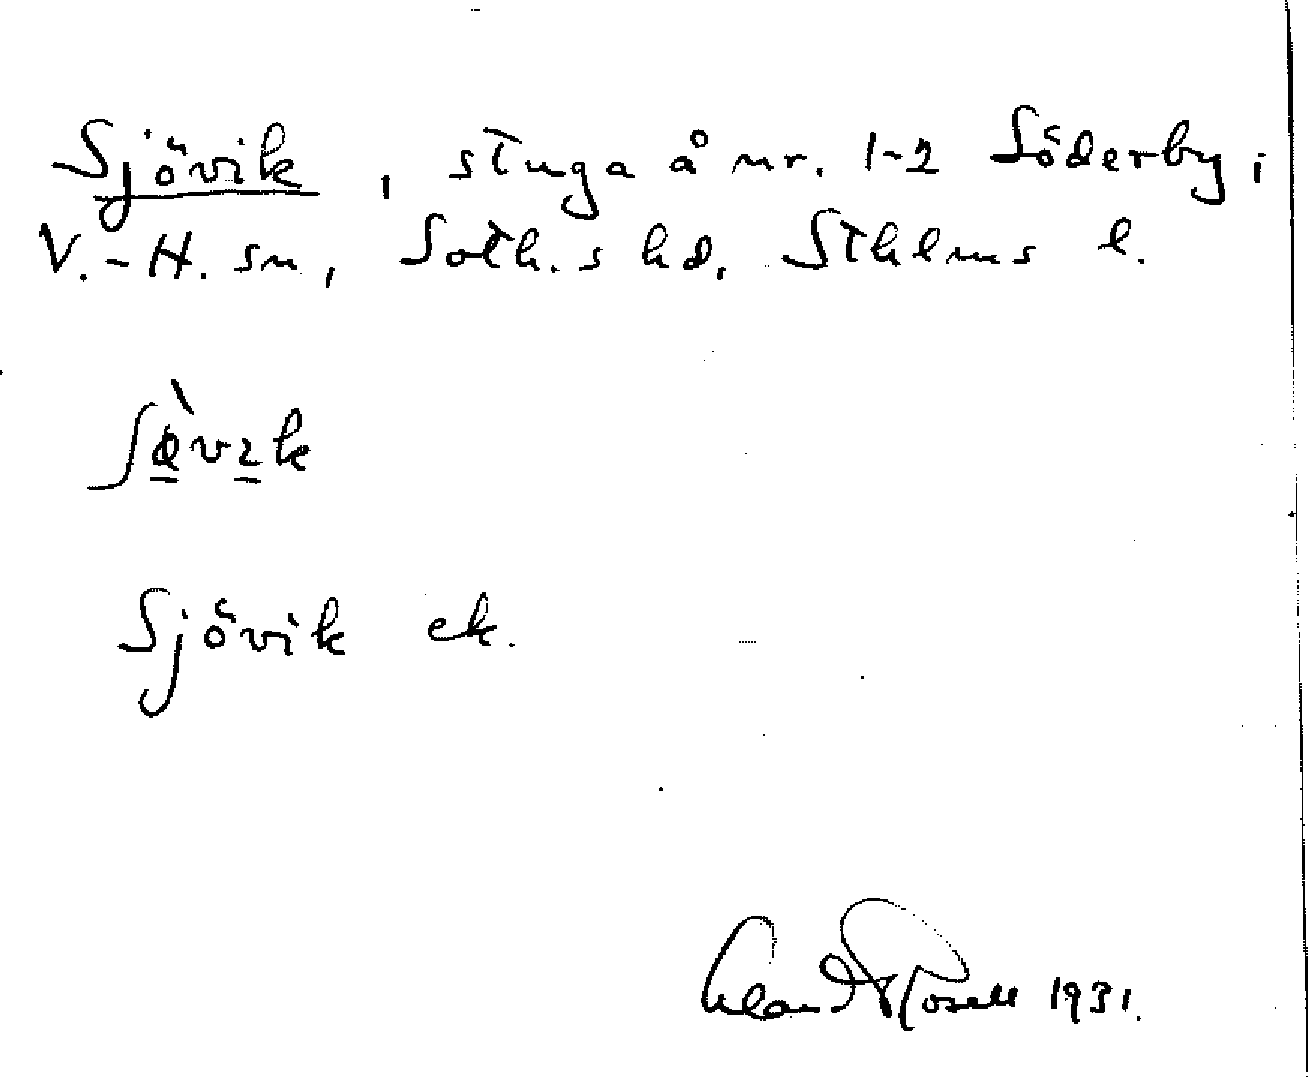 Sjövik, stuga å nr. 1-2 Söderby i
V.-H. sn, Soth.s hd, Sthlms l.
Sjövik ek.
1931.